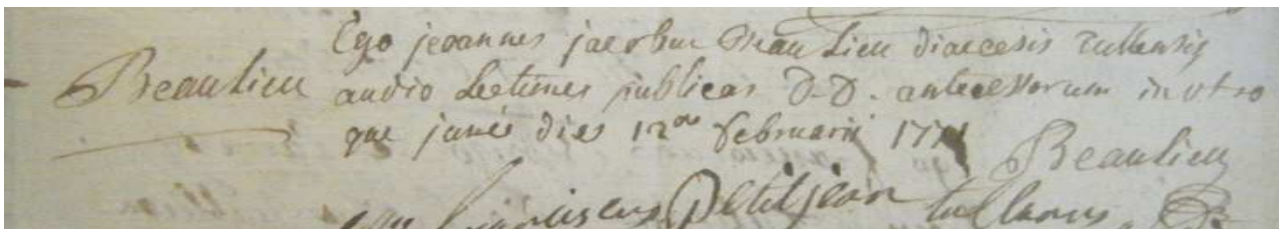 Beaulieu
Ego joannes jacobus Beaulieu diaecesis tullensis
audio lectiones publicas D.D. antecessorum in utro
que jure dies 12a februarii 1771
Beaulieu
franciscus Petitjean tullensis